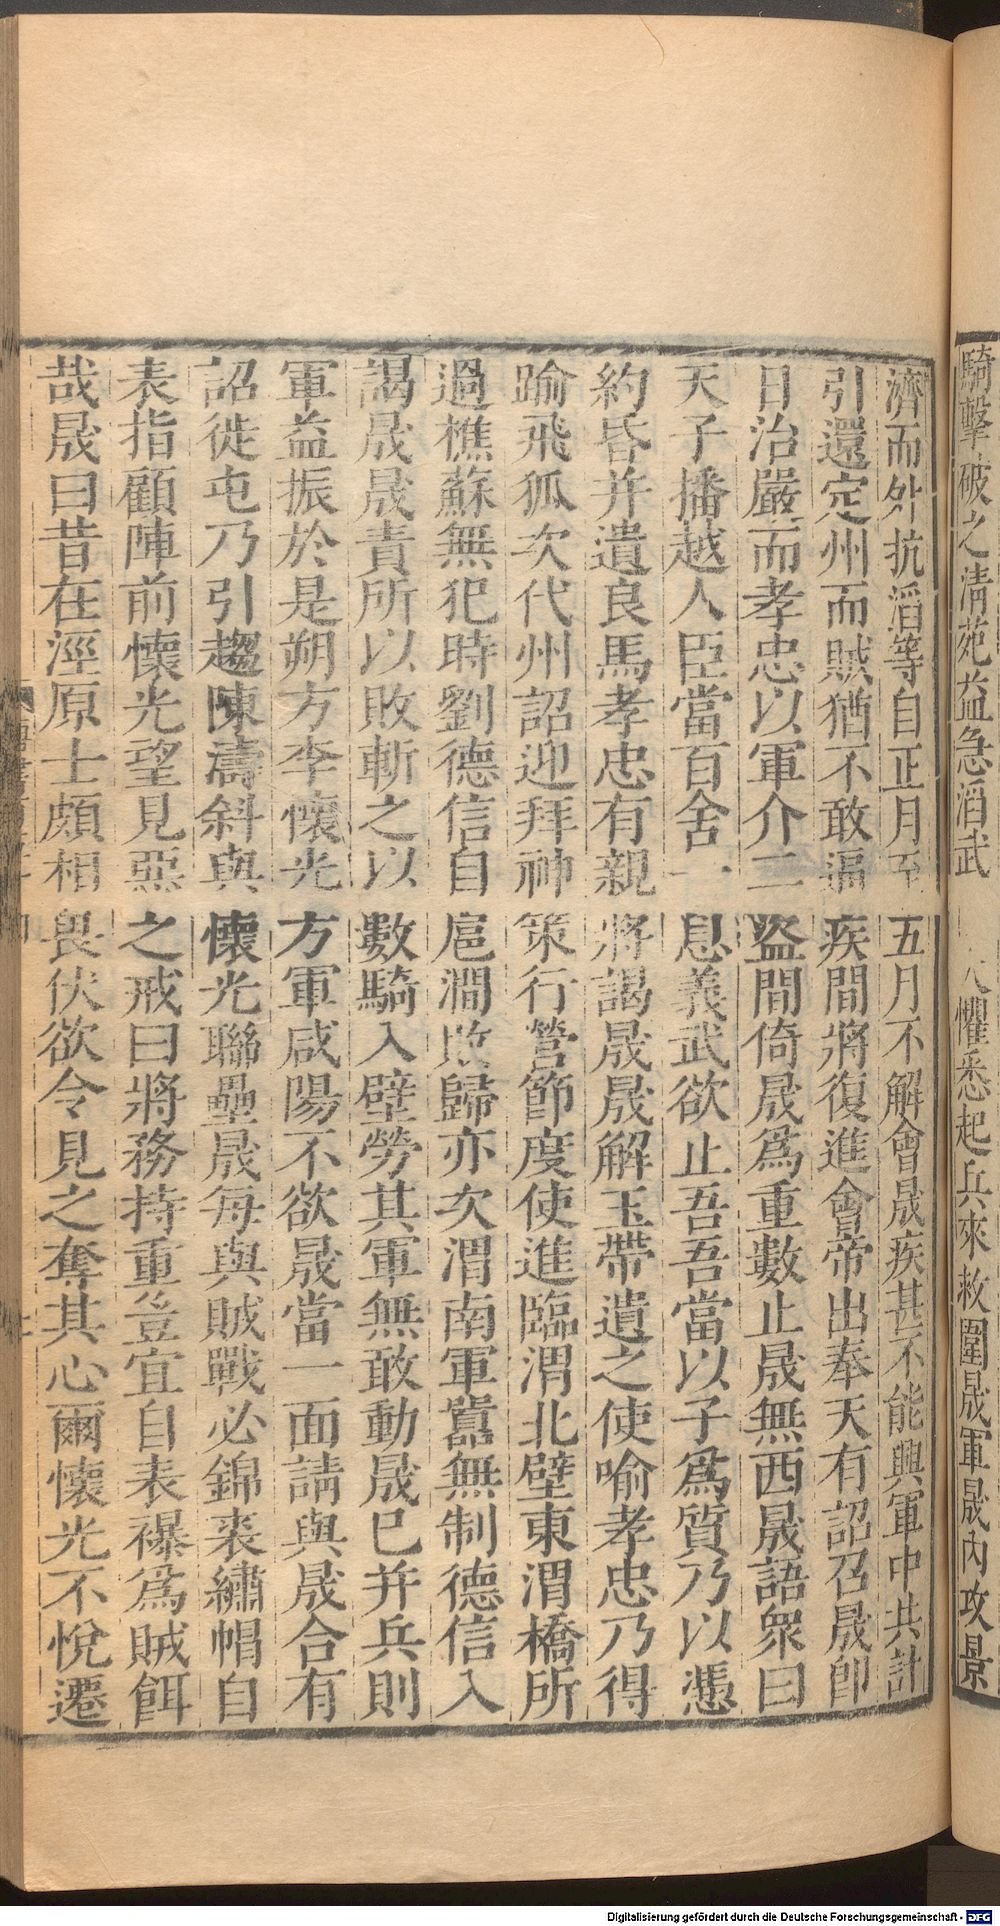 騎擊破之清苑益急滔武 懼悉起兵來救圍晟軍晟內攻景
濟而外抗滔等自正月至五月不解會晟疾甚不能興軍中共計
引還定州而賊猶不敢逼疾間將復進會帝出奉天有詔召晟即
日治嚴而孝忠以軍介二盜間倚晟爲重數止晟無西晟語衆曰
天子播越人臣當百舍一息義武欲止吾吾當以子爲質乃以憑
約昏并遺良馬孝忠有親將謁晟晟解玉帶遺之使喻孝忠乃得
踰飛狐次代州詔迎拜神策行營節度使進臨渭北壁東渭橋所
過樵蘇無犯時劉德信自扈澗敗歸亦次渭南軍囂無制德信入
謁晟晟責所以敗斬之以數騎入壁勞其軍無敢動晟已并兵則
軍益振於是朔方李懷光方軍咸陽不欲晟當一面請與晟合有
詔徙屯乃引趨陳濤斜與懷光聯壘晟每與賊戰必錦裘繡帽自
表指顧陣前懷光望見惡之戒曰將務持重豈宜自表襮爲賊餌
哉晟曰昔在涇原士頗相畏伏欲令見之奪其心爾懷光不悅遷
Digitalisierung gefördert durch die Deutsche Forschungsgemeinschaft - DFG